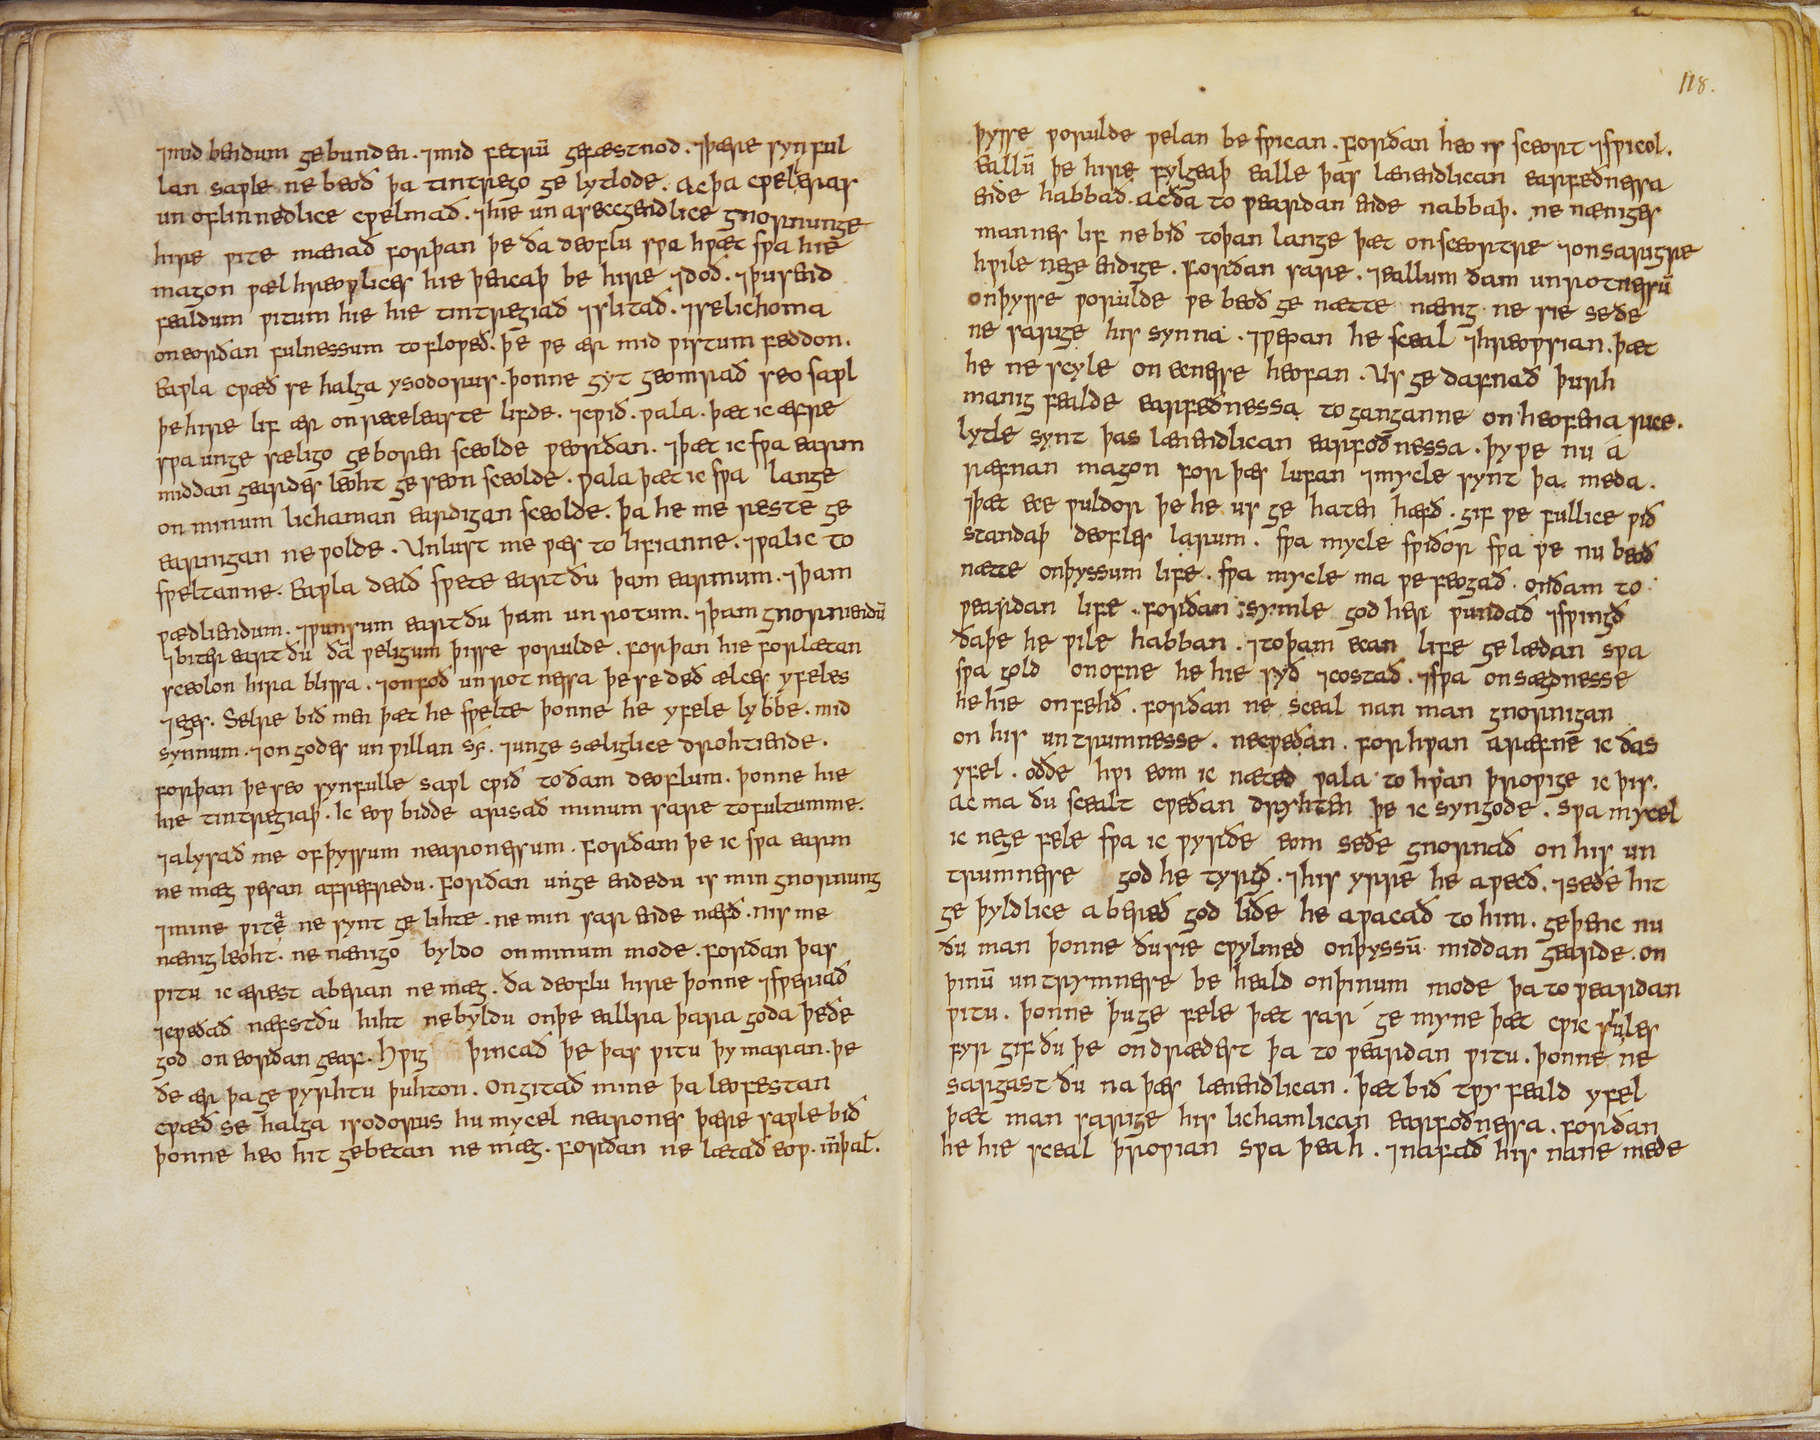 ⁊mid bendum gebunden. ⁊mid fetrū gefæstnod. ⁊þære synful
lan saƿle ne beoð þa tintrego ge lytlode. Ac þa cƿelleras
un oflinnedlice cƿelmað. ⁊hie un areccgendlice gnornunge
hire ƿite mænað forþan þe ða deoflu sƿa hƿæt sƿa hie
magon ƿælhreoƿlices hie þencaþ be hire ⁊doð. ⁊þusend
fealdum ƿitum hie hie tintregiað ⁊slitað. ⁊selichoma
on eorðan fulnessum tofloƿeð. þe ƿe ær mid ƿistum feddon.
Eaƿla cƿæð se halga ysodorus. þonne gyt geomrað seo saƿl
þe hire lif ær on receleaste lifde. ⁊cƿið. ƿala. þæt ic æfre
sƿa unge sæligo geboren sceolde ƿeorðan. ⁊þæt ic sƿa earm
middan geardes leoht geseon sceolde. ƿala þæt ic sƿa lange
on minum lichaman eardigan sceolde. þa he me reste ge
earnigan ne ƿolde. Unlust me ƿæs to lifianne. ⁊ƿa lic to
sƿeltanne. Eaƿla deað sƿete eart ðu þam earmum. ⁊þam
ƿædliendum. ⁊ƿunsum eart ðu þam unrotum. ⁊þam gnorniendū
⁊biter eart ðu ðā ƿeligum þisse ƿorulde. forþan hie forlætan
sceolon hira blissa. ⁊onfoð unrot nessa þe re deð ælces yfeles
⁊eges. Selre bið men þæt he sƿelte þonne he yfele lybbe. mid
synnum. ⁊on godes un ƿillan sy. ⁊unge sæliglice drohtiende.
forþan þe seo synfulle saƿl cƿið to ðam deoflum. þonne hie
hie tintregiaþ. Ic eoƿ bidde arisað minum sare to fultumme.
⁊alysað me of þyssum nearonessum. forðam þe ic sƿa earm
ne mæg ƿesan afrefredu. forðan unge endedu is min gnornung
⁊mine ƿitu ne synt ge lihte. ne min sar ende næfð. nis me
nænig leoht. ne nænigo byldo on minum mode. forðan þas
ƿitu ic ærest aberan ne mæg. ða deoflu hire þonne ⁊sƿeriað
⁊cƿeðað næfst ðu hiht ne byldu on þe eallra þara goda þe ðe
god on eorðan geaf. Hƿig þincað þe þas ƿitu þy maran. þe
ðe ær þa ge ƿyrhtu þuhton. Ongitað mine þa leofestan
cƿæð se halga isodorus hu mycel nearones þære saƿle bið
þonne heo hit gebetan ne mæg. forðan ne lætað eoƿ.
118.
þysse ƿorulde ƿelan be sƿican. forðan heo is sceort ⁊sƿicol.
Eallū þe hire fylgeaþ ealle þas lænendlican earfeðnessa
ende habbað. Ac ða to ƿeardan ende nabbaþ. ne næniges
mannes lif ne bið to þan lange þæt on sceortre ⁊on sarigre
hƿile ne ge endige. forðan sare. ⁊eallum ðam unrotnessū
on þysse ƿorulde ƿe beoð ge nætte nænig ne sie se ðe
ne sarige his synna. ⁊ƿeƿan he sceal ⁊hreoƿsian. þæt
he ne scyle on ecnesse heofan. Us ge dafnað þurh
manig fealde earfeðnessa to ganganne on heofena rice.
lytle synt þas lænendlican earfoðnessa. þy ƿe nu á
ræfnan magon for þæs lufan ⁊mycle synt þa meda.
⁊þæt ece ƿuldor þe he us ge haten hæfð. gif ƿe fullice ƿið
standaþ deofles larum. sƿa mycle sƿiðor sƿa ƿe nu beoð
nætte on þyssum life. sƿa mycle ma ƿe feogað. on ðam to
ƿeardan life. forðan symle god her ƿundað ⁊sƿingð
ða þe he ƿile habban. ⁊to þam ecan life ge lædan sƿa
sƿa gold on ofne he hie syð ⁊costað. ⁊sƿa on sægdnesse
he hie onfehð. forðan ne sceal nan man gnornigan
on his untrumnesse. ne cƿeðan. for hƿan aræfne ic ðas
yfel. oððe hƿi eom ic næted ƿala to hƿan þroƿige ic þis.
ac ma ðu scealt cƿeðan dryhten þe ic syngode. sƿa mycel
ic ne ge fele sƿa ic ƿyrðe eom se ðe gnornað on his un
trumnesse god he tyrgð. ⁊his yrre he aƿecð. ⁊se ðe hit
ge þyldlice abereð god liðe he aƿacað to him. geþenc nu
ðu man þonne ðu sie cƿylmed on þyssū middan gearde. on
þinū untrymnesse be heald on þinum mode þa to ƿeardan
ƿitu. þonne þu ge fele þæt sar ge myne þæt cƿic susles
fyr gif ðu þe ondrædest þa to ƿeardan ƿitu. þonne ne
sargast ðu na þæs lænendlican. þæt bið tƿy feald yfel
þæt man sarige his lichamlican earfoðnessa. forðan
he hie sceal þroƿian sƿa þeah. ⁊nafað his nane mede